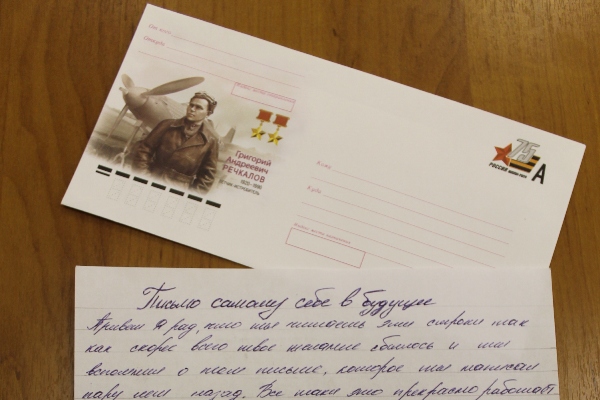 От кого
Откуда
Григорий
Андреевич
РЕЧКАЛОВ
1920–1990
Кому
Куда
75
РОССИЯ
А
Письмо самому себе в будущее
Привет Я рад, что ты читаешь эти строки так
как скорее всего твое желание сбылось и ты
вспомнил о том письме, которое ты написал
пару лет назад. Все таки это прекрасно работает